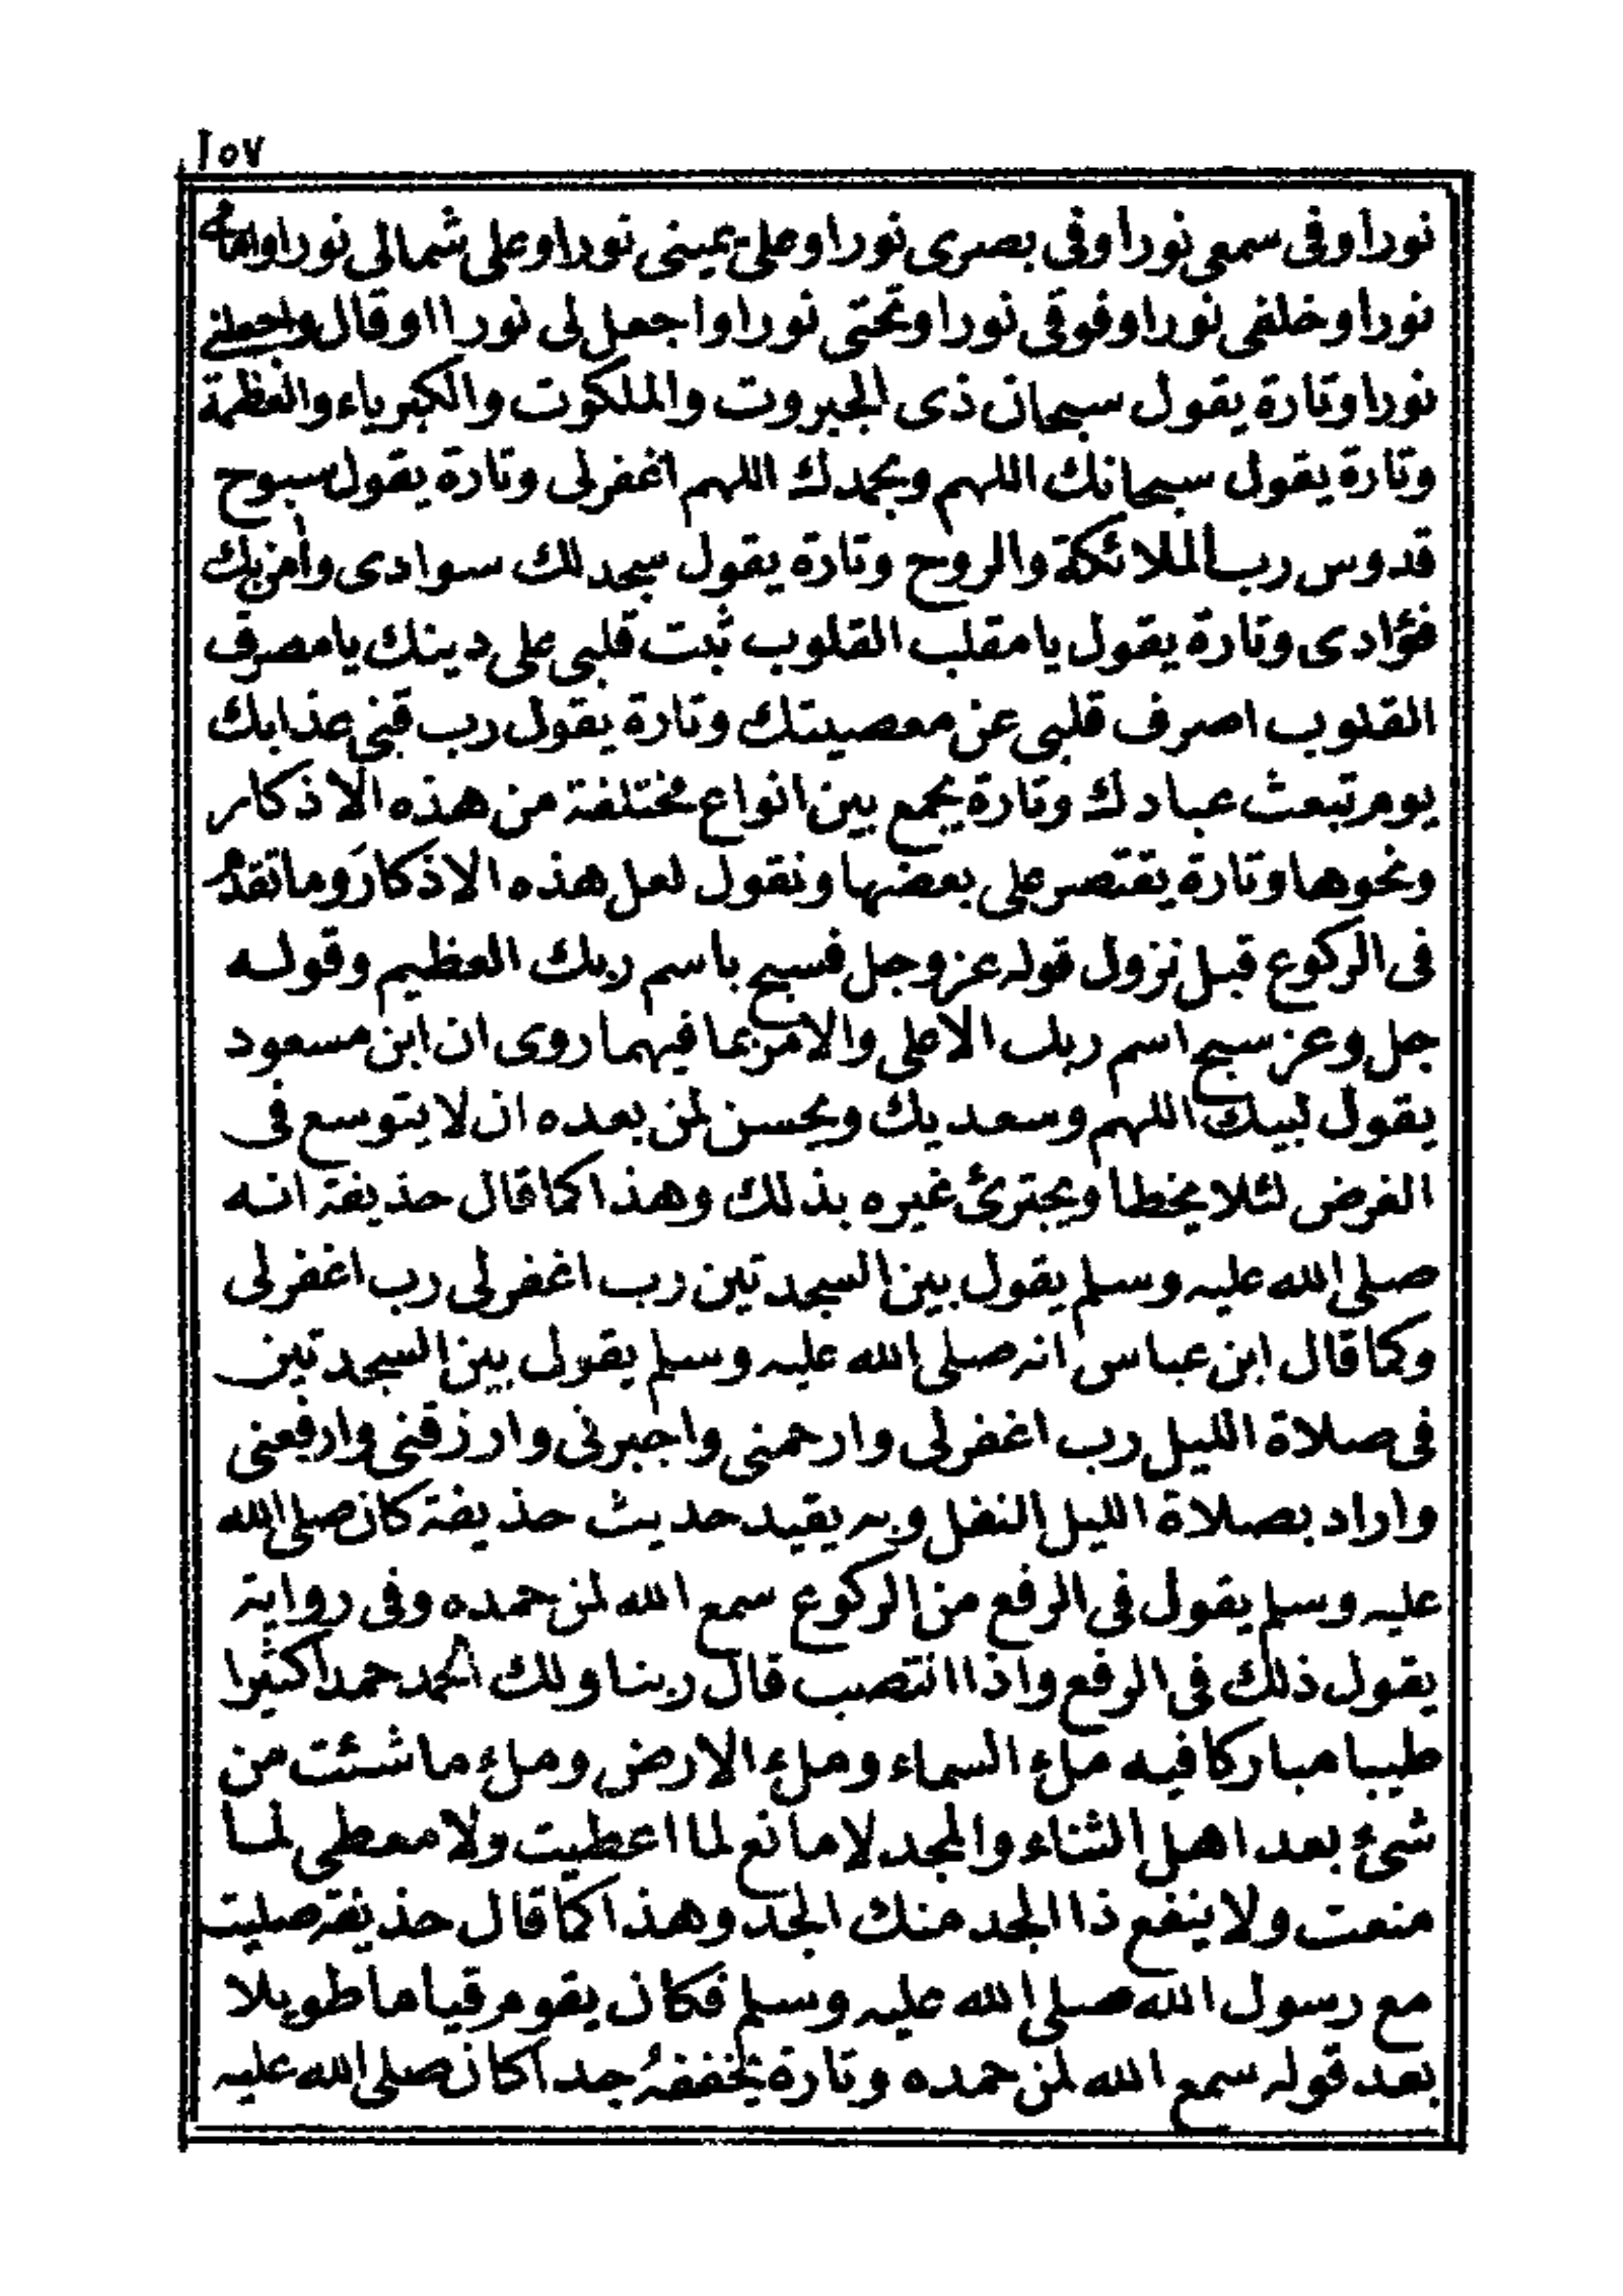 ١٥٧
نورا وفى سمعى نورا وفى بصرى نورا وعلى يمينى نورا وعلى شمالى نورا وامامى
نورا وخلفى نورا وفوقى نورا وتحتى نورا واجعل لى نورا او قال واجعلنى
نورا وتارة يقول سبحان ذى الجبروت والملكوت والكبرياء والعظمة
وتارة يقول سبحانك اللهم وبحمدك اللهم اغفر لى وتارة يقول سبوح
قدوس رب الملائكة والروح وتارة يقول سجد لك سوادى وامن بك
فؤادى وتارة يقول يا مقلب القلوب ثبت قلبى على دينك يا مصرف
القلوب اصرف قلبى عن معصيتك وتارة يقول رب قنى عذابك
يوم تبعث عبادك وتارة يجمع بين انواع مختلفة من هذه الاذكار
ونحوها وتارة يقتصر على بعضها ونقول لعل هذه الاذكار وما تقدم
فى الركوع قبل نزول قوله عز وجل فسبح باسم ربك العظيم وقوله
جل وعز سبح اسم ربك الاعلى والامر بما فيهما روى ان ابن مسعود
يقول لبيك اللهم وسعديك ويحسن لمن بعده ان لا يتوسع فى
الفرض لئلا يخطا ويجترئ غيره بذلك وهذا كما قال حذيفة انه
صلى الله عليه وسلم يقول بين السجدتين رب اغفر لى رب اغفر لى
وكما قال ابن عباس انه صلى الله عليه وسلم يقول بين السجدتين
فى صلاة الليل رب اغفر لى وارحمنى واجبرنى وارزقنى وارفعنى
واراد بصلاة الليل النفل وبه يقيد حديث حذيفة كان صلى الله
عليه وسلم يقول فى الرفع من الركوع سمع الله لمن حمده وفى رواية
يقول ذلك فى الرفع واذا انتصب قال ربنا ولك الحمد حمدا كثيرا
طيبا مباركا فيه ملء السماء وملء الارض وملء ما شئت من
شئ بعد اهل الثناء والمجد لا مانع لما اعطيت ولا معطى لما
منعت ولا ينفع ذا الجد منك الجد وهذا كما قال حذيفة صليت
مع رسول الله صلى الله عليه وسلم فكان يقوم قياما طويلا
بعد قوله سمع الله لمن حمده وتارة يخففه جدا كان صلى الله عليه